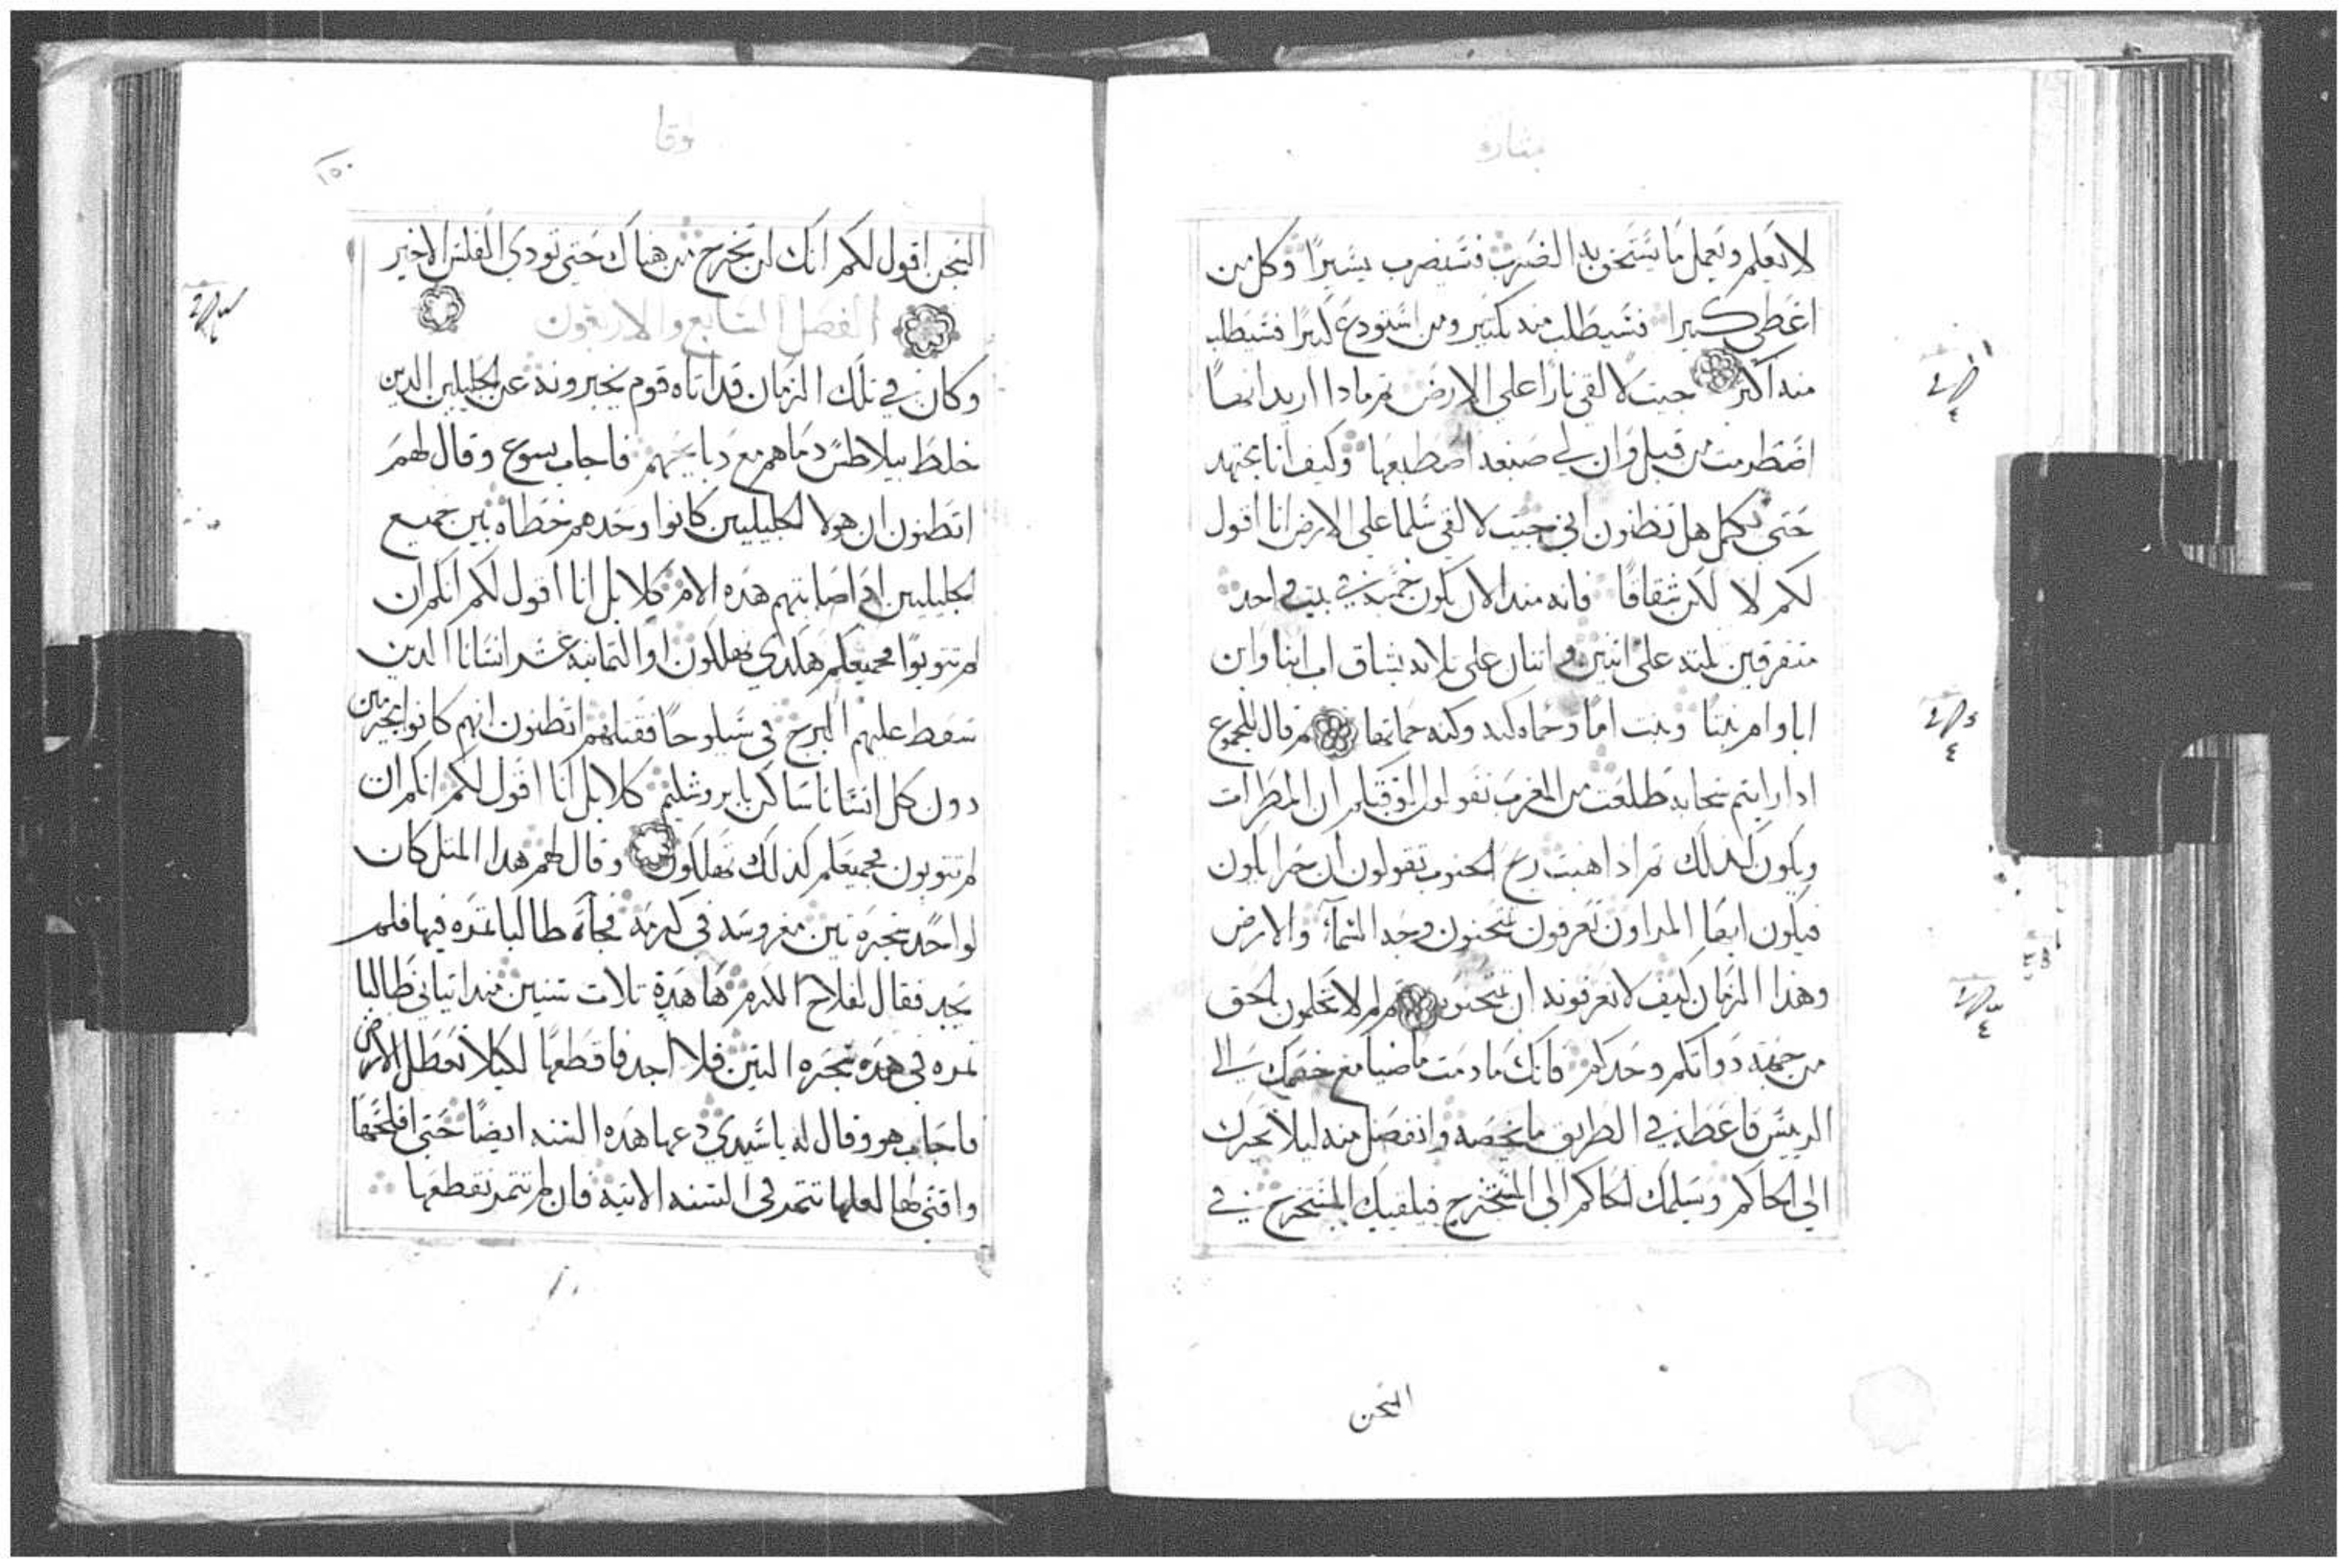 بشارة
لا يعلم ويعمل ما يستحق به الضرب فسيضرب يسيرا وكل من
اعطي كثيرا فسيطلب منه بكثير ومن استودع كثيرا فسيطلب
منه اكثر جيت لالقي نارا على الارض ثم مادا اريد انها
اضطرمت من قبل وان لي صبغه اصطبغها وكيف انا مجتهد
حتى تكمل هل تظنون اني جيت لالقي سلما على الارض انا اقول
لكم لا لكن شقاقا فانه مند الان يكون خمسة في بيت واحد
متفرقين تلته على اتنين واتنان على تلاته يشاق اب ابنا وابن
ابا وام بنتا وبنت اما وحماه كنه وكنه حماتها ثم قال للجموع
ادا رايتم سحابه طلعت من المغرب تقولون للوقت ان المطر ات
ويكون كذلك ثم اذا هبت ريح الجنوب تقولون ان حرا يكون
فيكون ايها المراون تعرفون تمتحنون وجه السماء والارض
وهذا الزمان كيف لا تعرفونه ان تمتحنوه ثم لم لا تحكمون بالحق
من جهة دواتكم وحدكم فانك ما دمت ماضيا مع خصمك الى
الرييس فاعطه في الطريق ما يخصه وانفصل منه ليلا يجرك
الى الحاكم ويسلمك الحاكم الى المستخرج فيلقيك المستخرج في
السجن
لوقا
١٥٠
السجن اقول لكم انك لن تخرج من هناك حتى تودي الفلس الاخير
الفصل السابع والاربعون
وكان في تلك الزمان قد اتاه قوم يخبرونه عن الجليلين الدين
خلط بيلاطس دماهم مع دبايحهم فاجاب يسوع وقال لهم
اتظنون ان هولا الجليليين كانوا وحدهم خطاه بين جميع
الجليليين اذ اصابتهم هده الام كلا بل انا اقول لكم انكم ان
لم تتوبوا فجميعكم هكدي تهلكون او التمانية عشر انسانا الدين
سقط عليهم البرج في سيلوحا فقتلهم اتظنون انهم كانوا مجرمين
دون كل انسانا ساكن بايروشليم كلا بل انا اقول لكم انكم ان
لم تتوبون فجميعكم كذلك تهلكون وقال لهم هدا المتل كان
لواحد شجره تين مغروسه في كرمه فجاة طالبا تمره فيها فلم
يجد فقال لفلاح الكرم ها هدة تلات سنين مند اتياني طالبا
تمره في هده شجره التين فلا اجد فاقطعها لكيلا تعطل الارض
فاجاب هو وقال له يا سيدي دعها هده السنه ايضا حتى افلحها
واقني لها لعلها تتمر في السنه الاتيه فان لم تتمر تقطعها